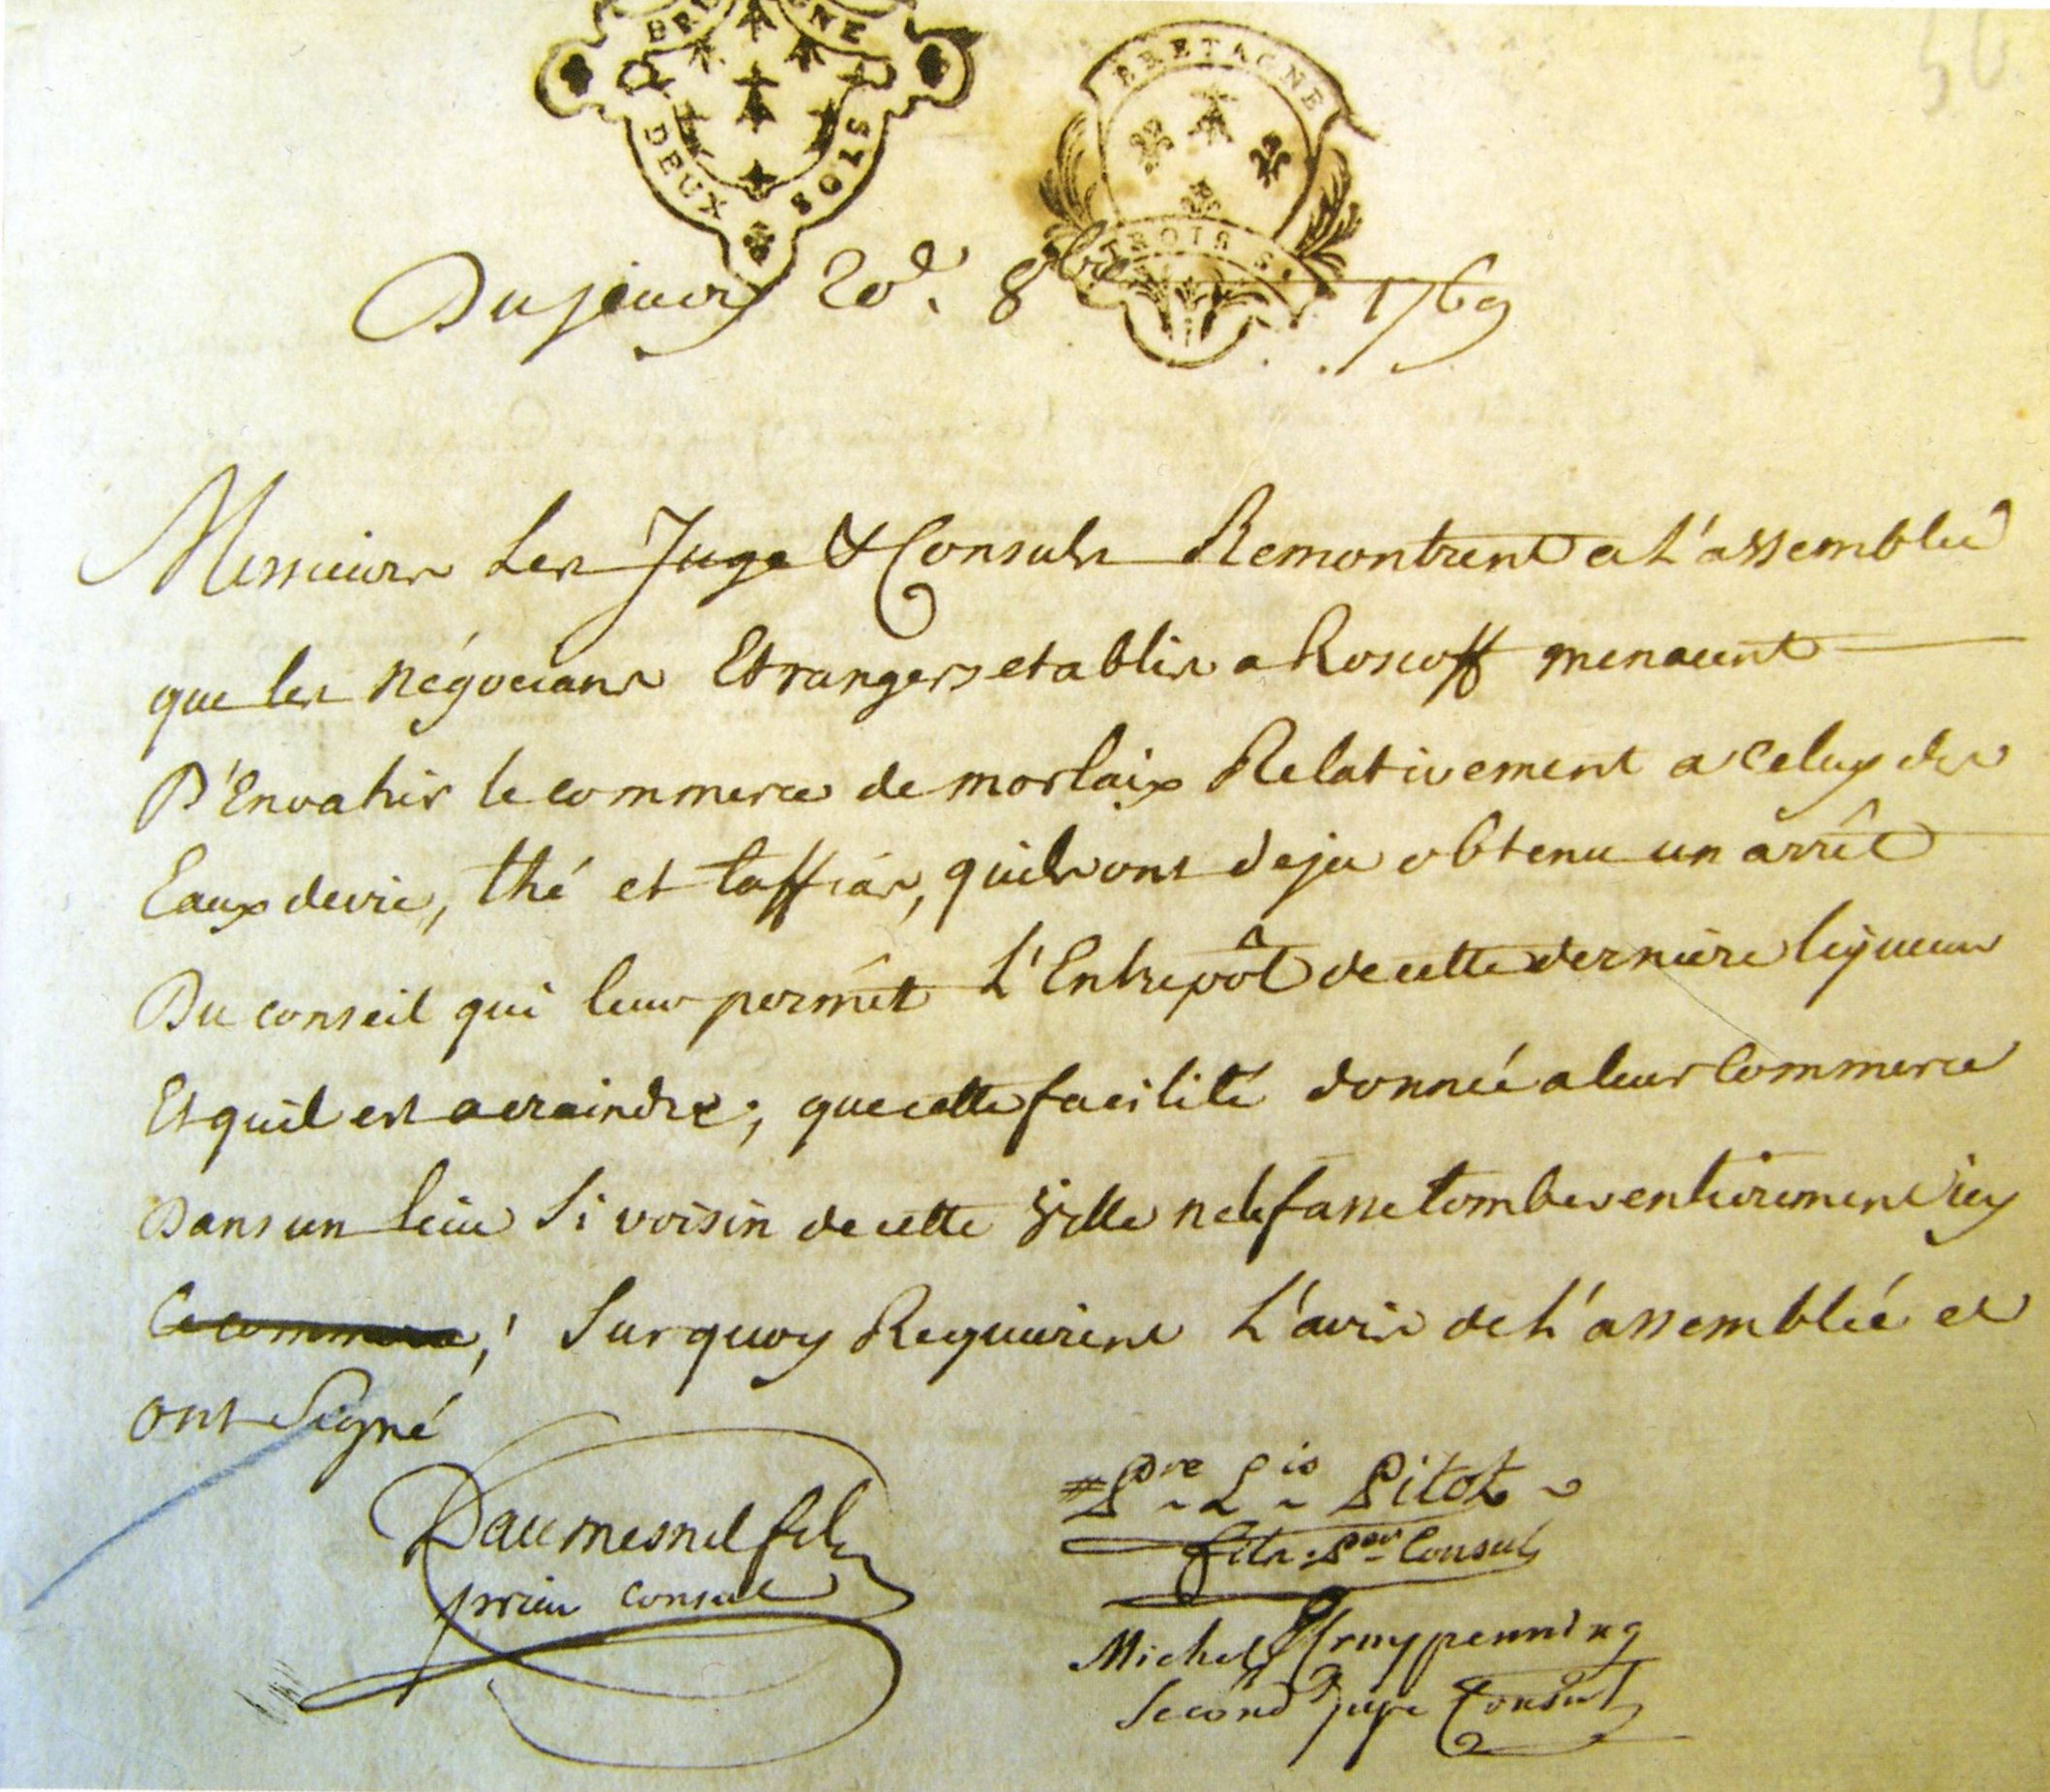 BRETAGNE
DEUX SOLS
BRETAGNE
TROIS S.
56
Du jeudy 20e. 8bre 1769
Messieurs Les Juge & Consuls Remontrent a L'assemblée
que les négocians Etrangers etablis a Roscoff menacent
D'Envahir le commerce de morlaix Relativement a celuy des
Eaux devie, thé et taffias, quils ont deja obtenu un arrêt
Du conseil qui leur permêt L'Entrepôt de cette derniere liqueur
Et quil est acraindre; que cette facilité donnée a leur Commerce
Dans un lieu si voisin de cette ville nele fasse tomber entierement icy
le commerce; Sur quoy Requierent L'avis de L'assemblée et
ont Signé
Daumesnil fils
prieur consul
Pre Lis Pitot
fils. Per Consul
Michel Gruypenning
Second Juge Consul